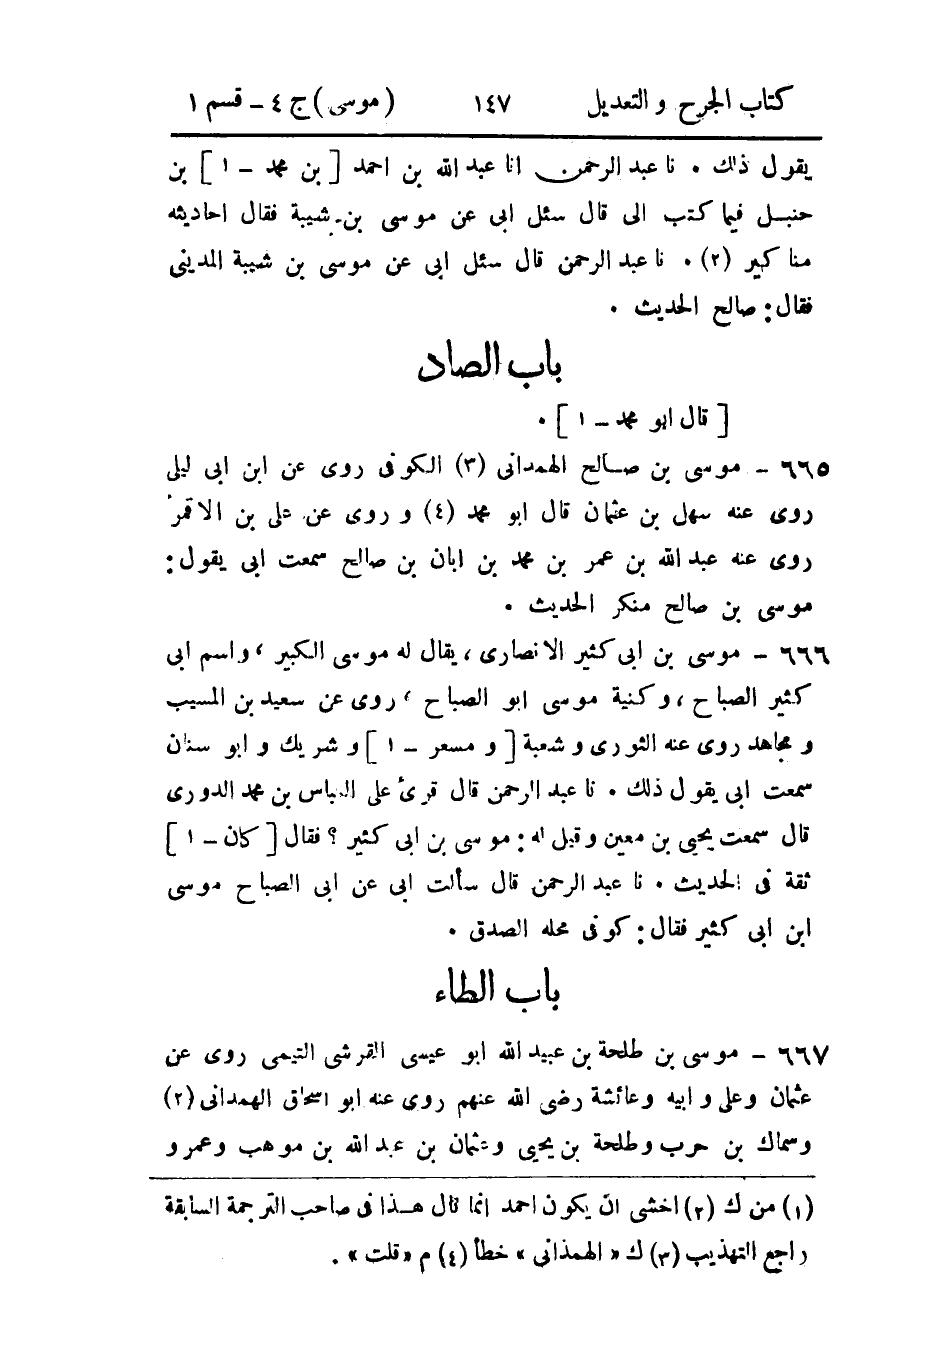 كتاب الجرح و التعديل ١٤٧ (موسى) ج ٤ - قسم ١
يقول ذلك . نا عبد الرحمن انا عبد الله بن احمد [ بن محمد - ١ ] بن
حنبل فيما كتب الى قال سئل ابى عن موسى بن شيبة فقال احاديثه
مناكير (٢) . نا عبد الرحمن قال سئل ابى عن موسى بن شيبة المدينى
فقال : صالح الحديث .
باب الصاد
[ قال ابو محمد - ١ ] .
٦٦٥ - موسى بن صالح الهمدانى (٣) الكوفى روى عن ابن ابى ليلى
روى عنه سهل بن عثمان قال ابو محمد (٤) و روى عن على بن الاقمر
روى عنه عبد الله بن عمر بن محمد بن ابان بن صالح سمعت ابى يقول :
موسى بن صالح منكر الحديث .
٦٦٦ - موسى بن ابى كثير الانصارى ، يقال له موسى الكبير ، واسم ابى
كثير الصباح ، وكنية موسى ابو الصباح ، روى عن سعيد بن المسيب
و مجاهد روى عنه الثورى و شعبة [ و مسعر - ١ ] و شريك و ابو سنان
سمعت ابى يقول ذلك . نا عبد الرحمن قال قرئ على العباس بن محمد الدورى
قال سمعت يحيى بن معين و قيل له : موسى بن ابى كثير ؟ فقال [ كان - ١ ]
ثقة فى الحديث . نا عبد الرحمن قال سألت ابى عن ابى الصباح موسى
ابن ابى كثير فقال : كوفى محله الصدق .
باب الطاء
٦٦٧ - موسى بن طلحة بن عبيد الله ابو عيسى القرشى التيمى روى عن
عثمان وعلى و ابيه وعائشة رضى الله عنهم روى عنه ابو اسحاق الهمدانى (٢)
وسماك بن حرب وطلحة بن يحيى وعثمان بن عبد الله بن موهب وعمرو
(١) من ك (٢) اخشى ان يكون احمد انما قال هذا فى صاحب الترجمة السابقة
راجع التهذيب (٣) ك « الهمذانى » خطأ (٤) م « قلت » .